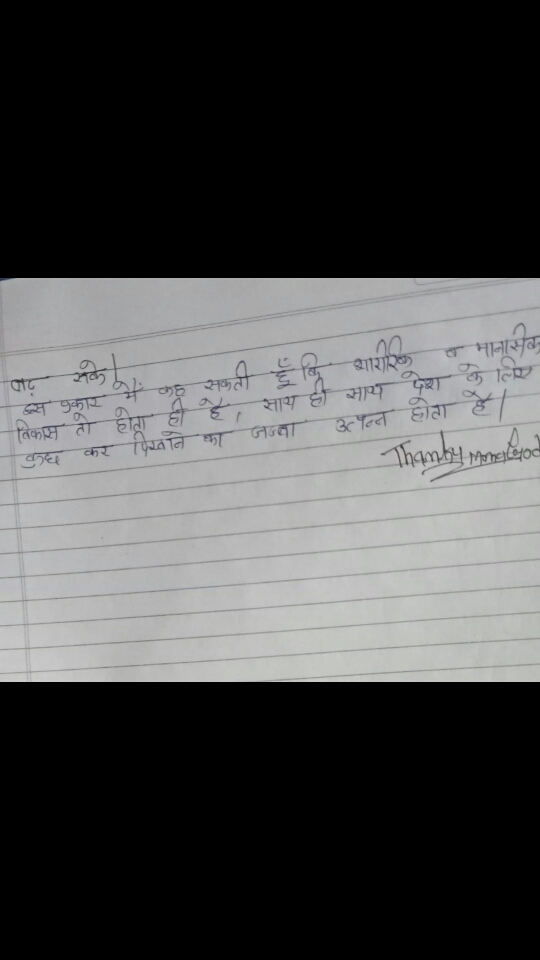 बढ़ सके।
इस प्रकार मैं कह सकती हूँ कि शारीरिक व मानसिक
विकास तो होता ही है, साथ ही साथ देश के लिए
कुछ कर दिखाने का जज्बा उत्पन्न होता है।